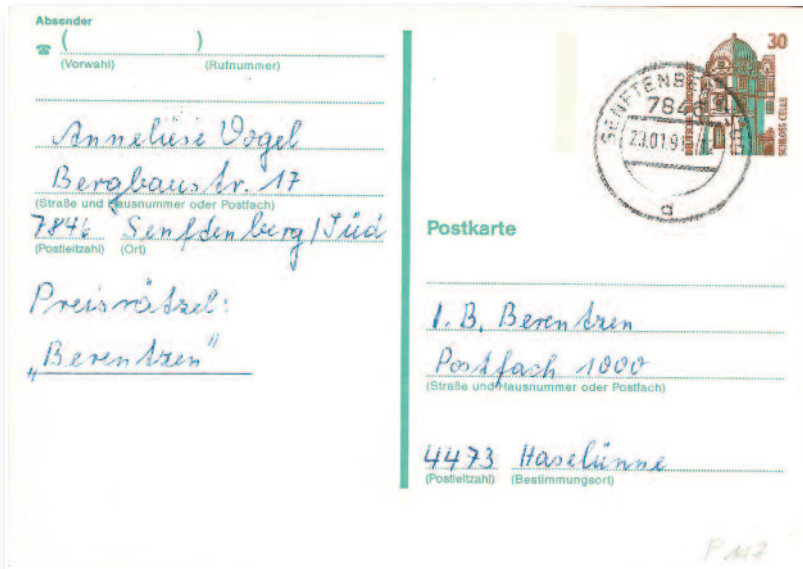 Absender
☎ ( )
(Vorwahl) (Rufnummer)
Anneliese Vogel
Bergbaustr. 17
(Straße und Hausnummer oder Postfach)
7846 Senftenberg/Süd
(Postleitzahl) (Ort)
Preisrätzel:
„Berentzen"
30
SCHLOSS CELLE
SENFTENBE
784
23.01.91
d
Postkarte
I. B. Berentzen
Postfach 1000
(Straße und Hausnummer oder Postfach)
4473 Haselünne
(Postleitzahl) (Bestimmungsort)
P 147